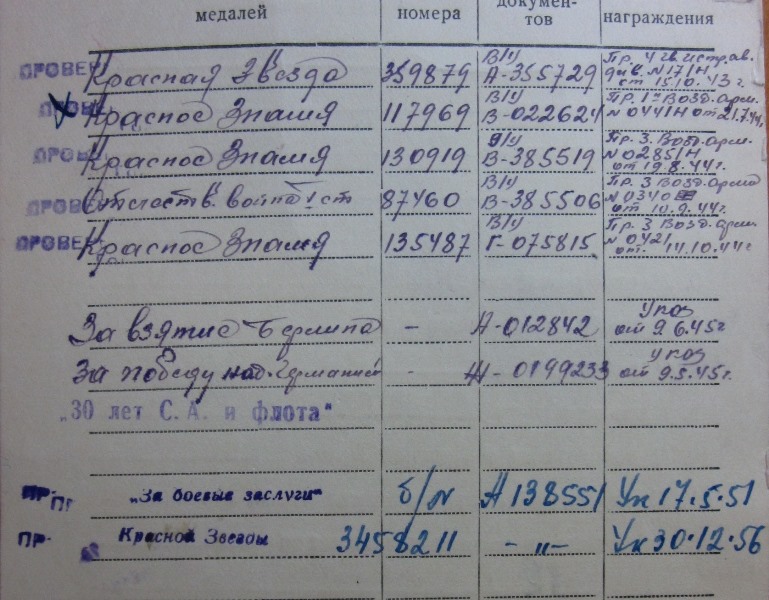 медалей номера докумен-тов награждения
ПРОВЕ Красная Звезда 359879 В/ч А-355729 Пр. 4 гв. истр. ав. див. N 17/Н от 15.10.43 г.
Красное Знамя 117969 В/ч В-022624 Пр. 1й Возд. арм. N 044/Н от 21.7.44г.
ПРОВЕ Красное Знамя 130919 В/ч В-385519 Пр. 3. Возд. арм. N 0285/Н от 19.8.44г.
ПРОВЕ Отечеств. война I ст 87460 В/ч В-385506 Пр. 3 Возд. арми N 0340 от 10.9.44г.
ПРОВЕ Красное Знамя 135487 В/ч Г-075815 Пр. 3 Возд. арм. N 0421 от. 14.10.44г
За взятие Берлина - А-012842 Указ от 9.6.45г
За победу над Германией - Ж-0199233 указ от 9.5.45г.
„30 лет С. А. и флота“
ПР- „За боевые заслуги“ б/N А 138551 Ук 17.5.51
ПР- Красной Звезды 3458211 - „ - Ук 30.12.56